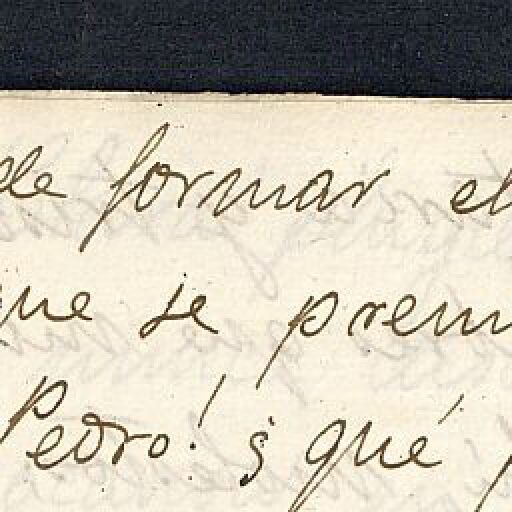 de formar el
que se prem
Pedro! ¿qué